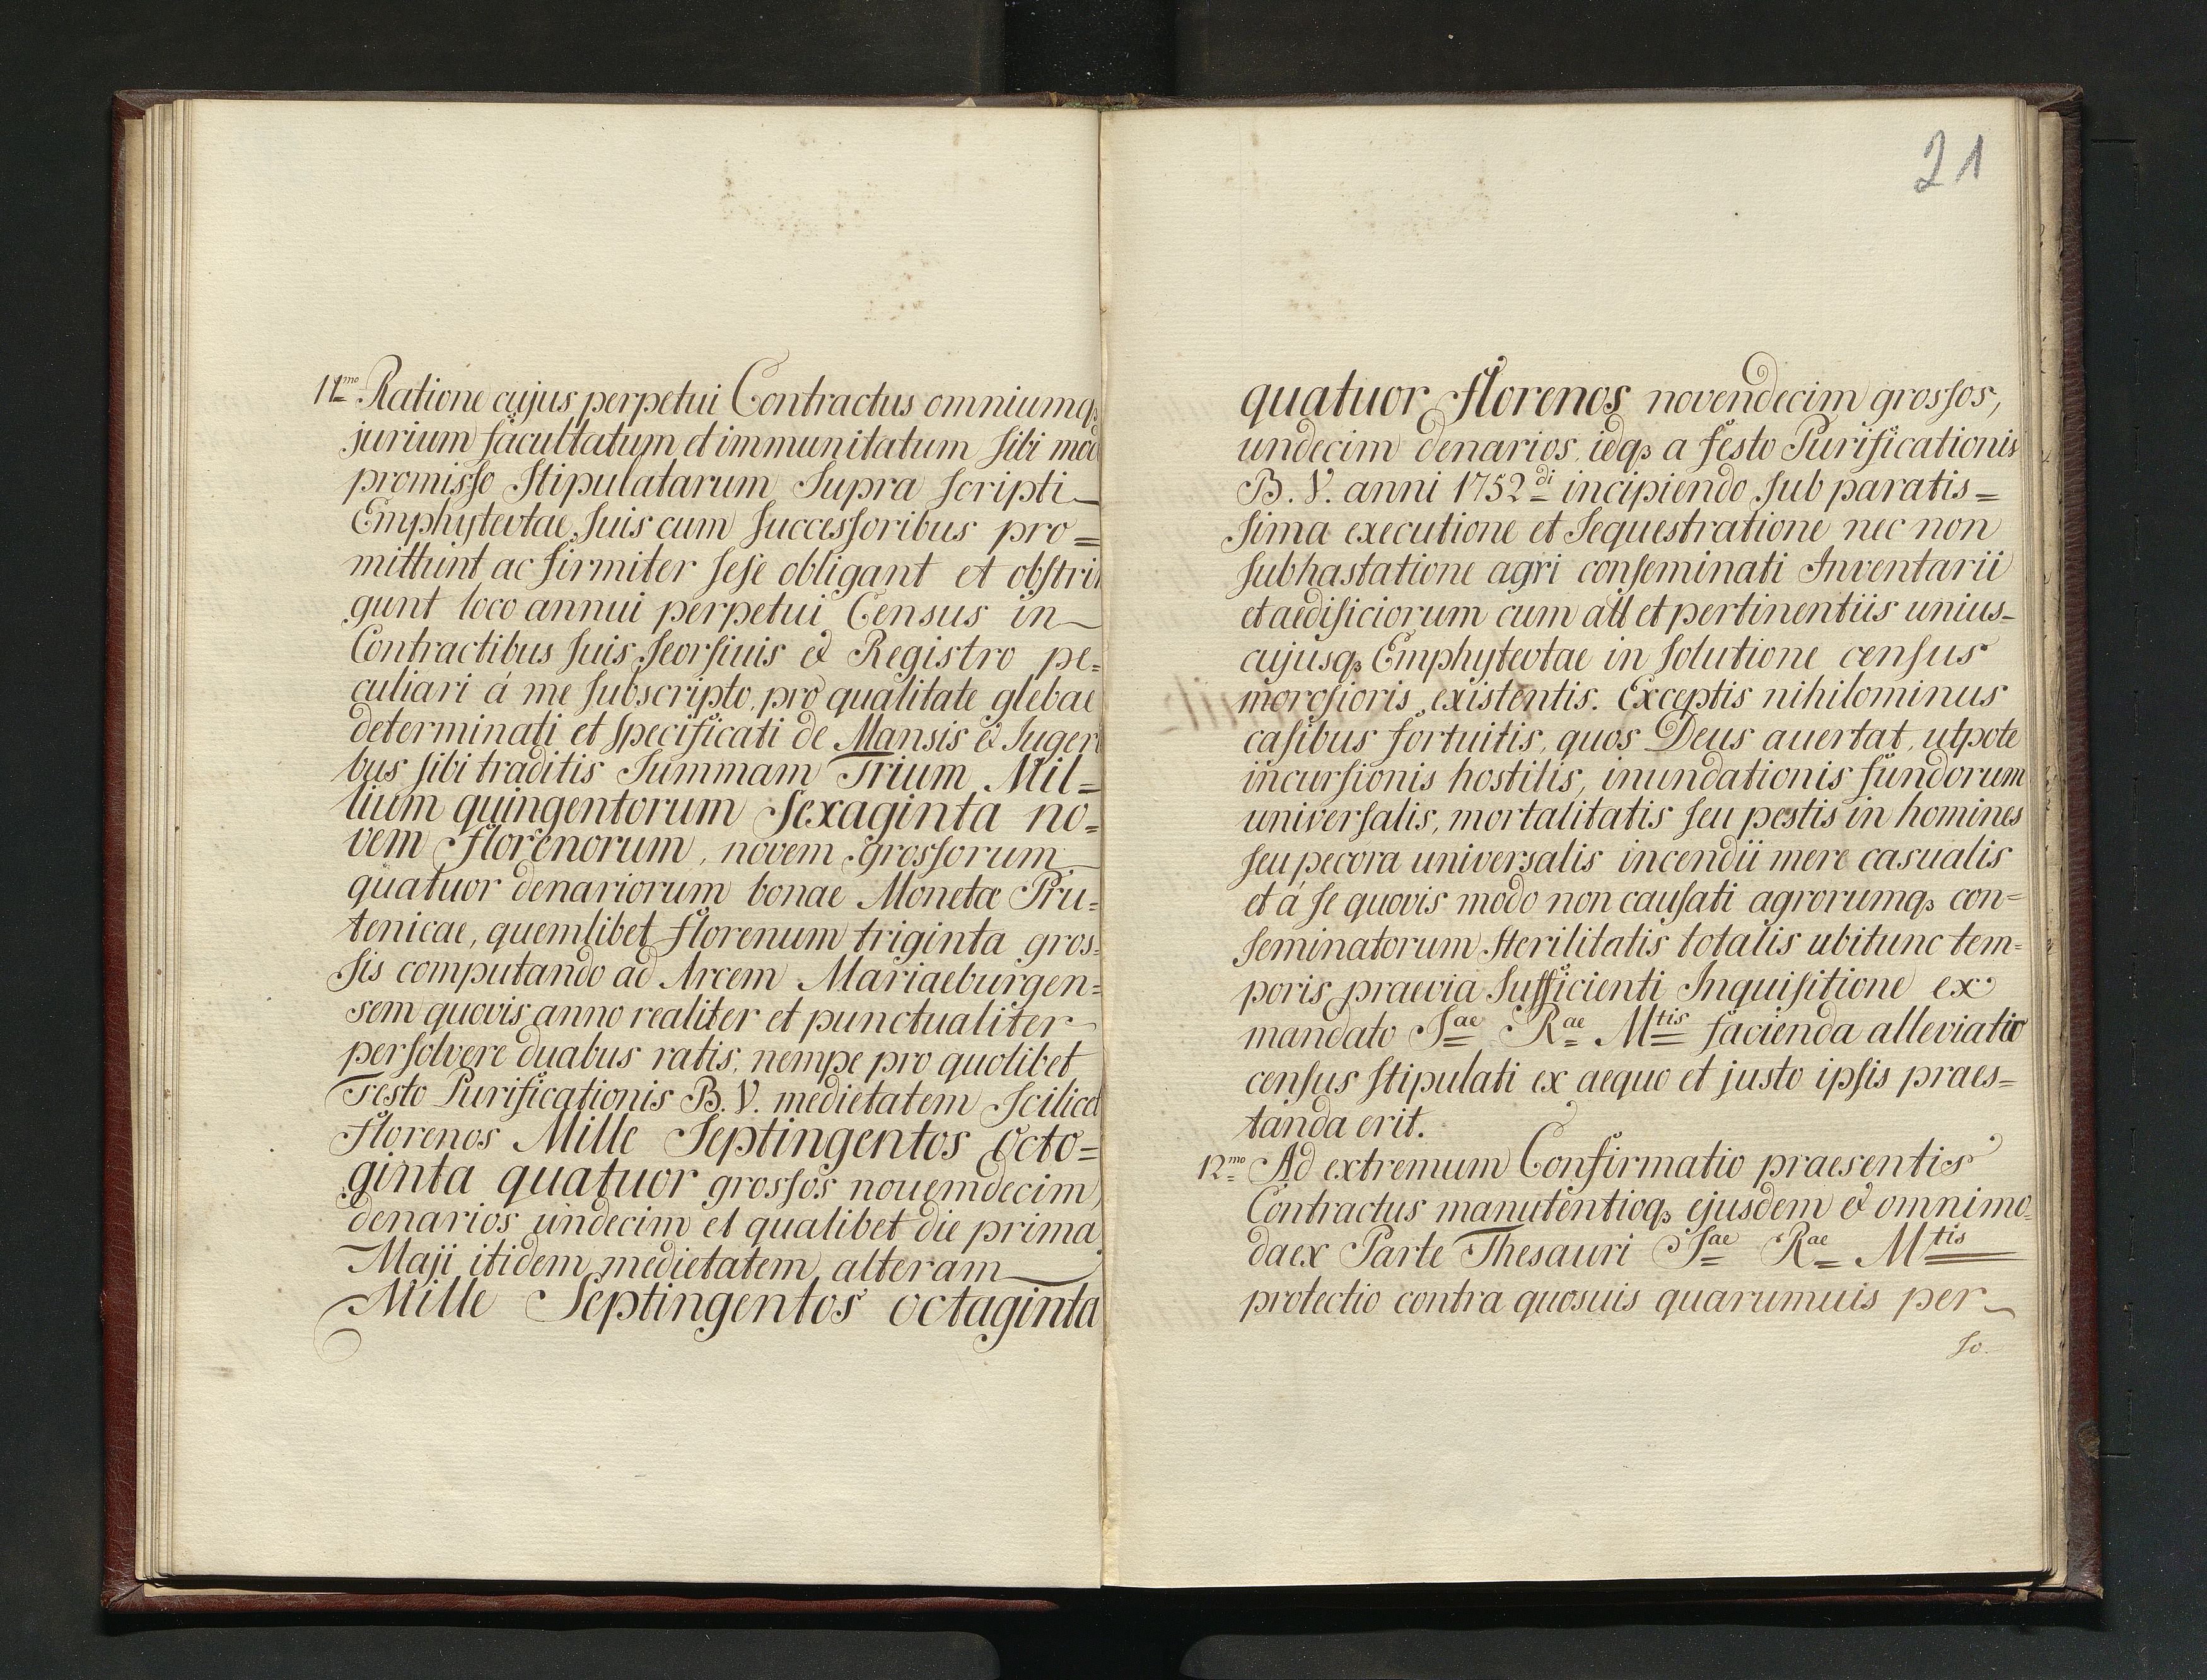 11mo Ratione cujus perpetui Contractus omniumqꝫ
jurium facultatum et immunitatum sibi mod
promisso Stipulatarum Supra scripti
Emphytevtae, suis cum successoribus pro=
mittunt ac firmiter sese obligant et obstrin
gunt loco annui perpetui Census in
Contractibus suis seorsiuis & Registro pe=
culiari á me subscripto, pro qualitate glebae
determinati et specificati de Mansis & Iugeri
bus sibi traditis Summam Trium Mil=
lium quingentorum Sexaginta no=
vem Florenorum, novem grossorum
quatuor denariorum bonae Monetæ Pru=
tenicae, quemlibet florenum triginta gros=
sis computando ad Arcem Mariaeburgen=
sem quovis anno realiter et punctualiter
persolvere duabus ratis, nempe pro quolibet
Festo Purificationis B. V. medietatem Scilicet
Florenos Mille Septingentos Octo=
ginta quatuor grossos nouemdecim
denarios undecim et qualibet die prima
Maji itidem medietatem alteram
Mille Septingentos octaginta
21
quatuor Florenos novendecim grossos,
undecim denarios, idqꝫ a festo Purificationis
B. V. anni 1752di incipiendo sub paratis=
sima executione et Sequestratione nec non
subhastatione agri conseminati Inventarii
et aedificiorum cum att et pertinentiis unius=
cujusqꝫ Emphytevtae in solutione census
morosioris existentis. Exceptis nihilominus
casibus fortuitis, quos Deus auertat, utpote
incursionis hostilis, inundationis fundorum
universalis, mortalitatis seu pestis in homines
seu pecora universalis incendii mere casualis
et á se quovis modo non causati agrorumqꝫ con=
seminatorum Sterilitatis totalis ubi tunc tem=
poris praevia Sufficienti Inquisitione ex
mandato Sae Rae Mtis facienda alleviatio
census stipulati ex aequo et justo ipsis praes=
tanda erit.
12mo Ad extremum Confirmatio praesentis
Contractus manutentioqꝫ ejusdem & omnimo=
da ex Parte Thesauri Sae Rae Mtis
protectio contra quosuis quarumuis per
so.